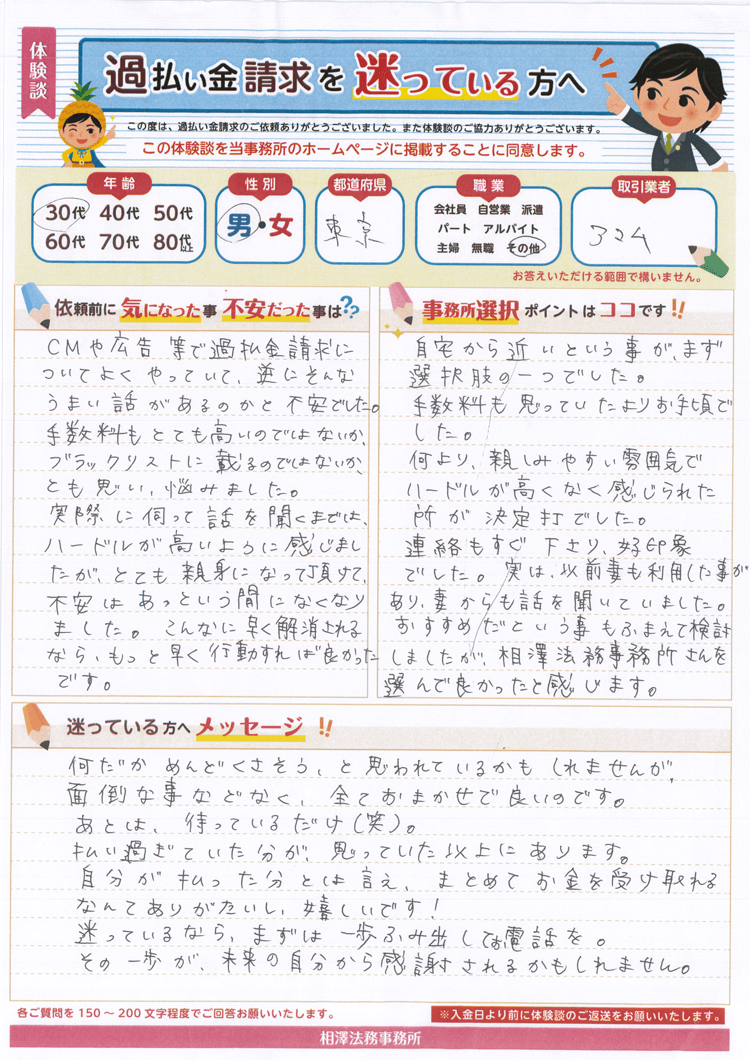 体験談
過払い金請求を迷っている方へ
この度は、過払い金請求のご依頼ありがとうございました。また体験談のご協力ありがとうございます。
この体験談を当事務所のホームページに掲載することに同意します。
年齢
30代 40代 50代
60代 70代 80代以上
性別
男・女
都道府県
東京
職業
会社員 自営業 派遣
パート アルバイト
主婦 無職 その他
取引業者
アコム
お答えいただける範囲で構いません。
依頼前に気になった事 不安だった事は??
CMや広告等で過払金請求に
ついてよくやっていて、逆にそんな
うまい話があるのかと不安でした。
手数料もとても高いのではないか、
ブラックリストに載るのではないか、
とも思い、悩みました。
実際に伺って話を聞くまでは、
ハードルが高いように感じまし
たが、とても親身になって頂けて、
不安はあっという間になくなり
ました。こんなに早く解消される
なら、もっと早く行動すれば良かった
です。
事務所選択ポイントはココです!!
自宅から近いという事が、まず
選択肢の一つでした。
手数料も思っていたよりお手頃で
した。
何より、親しみやすい雰囲気で
ハードルが高くなく感じられた
所が決定打でした。
連絡もすぐ下さり、好印象
でした。実は、以前妻も利用した事が
あり、妻からも話を聞いていました。
おすすめだという事もふまえて検討
しましたが、相澤法務事務所さんを
選んで良かったと感じます。
迷っている方へメッセージ!!
何だかめんどくさそう、と思われているかもしれませんが、
面倒な事などなく、全ておまかせで良いのです。
あとは、待っているだけ(笑)。
払い過ぎていた分が、思っていた以上にあります。
自分が払った分とは言え、まとめてお金を受け取れる
なんてありがたいし、嬉しいです!
迷っているなら、まずは一歩ふみ出してお電話を。
その一歩が、未来の自分から感謝されるかもしれません。
各ご質問を150〜200文字程度でご回答お願いいたします。
※入金日より前に体験談のご返送をお願いいたします。
相澤法務事務所